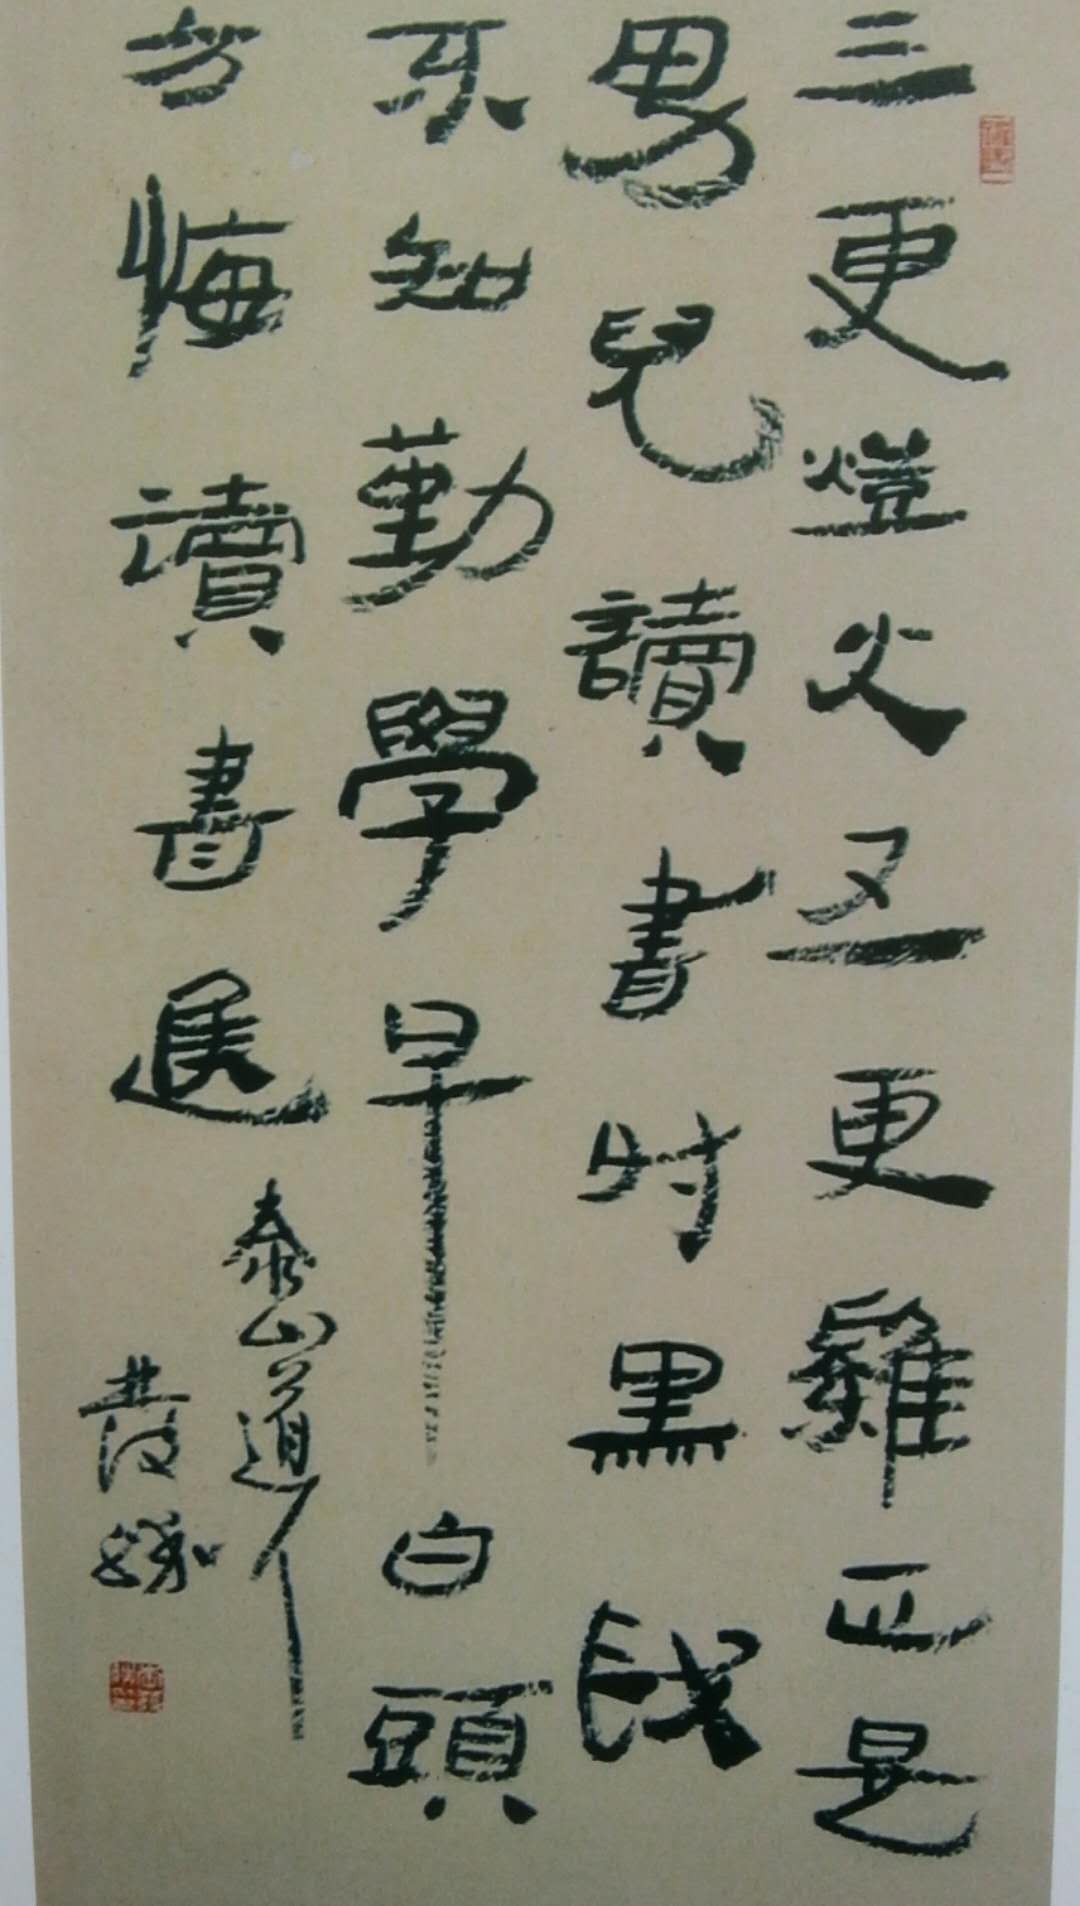 三更燈火五更雞正是
男兒讀書時黑髮
不知勤學早白頭
方悔讀書遲
泰山道人